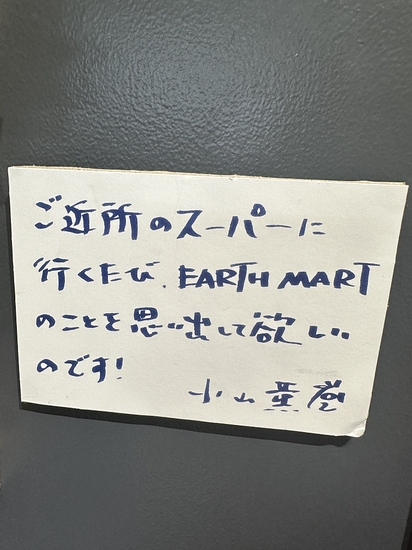 ご近所のスーパーに
行くたび、EARTH MART
のことを思い出して欲しい
のです!
小山薫堂